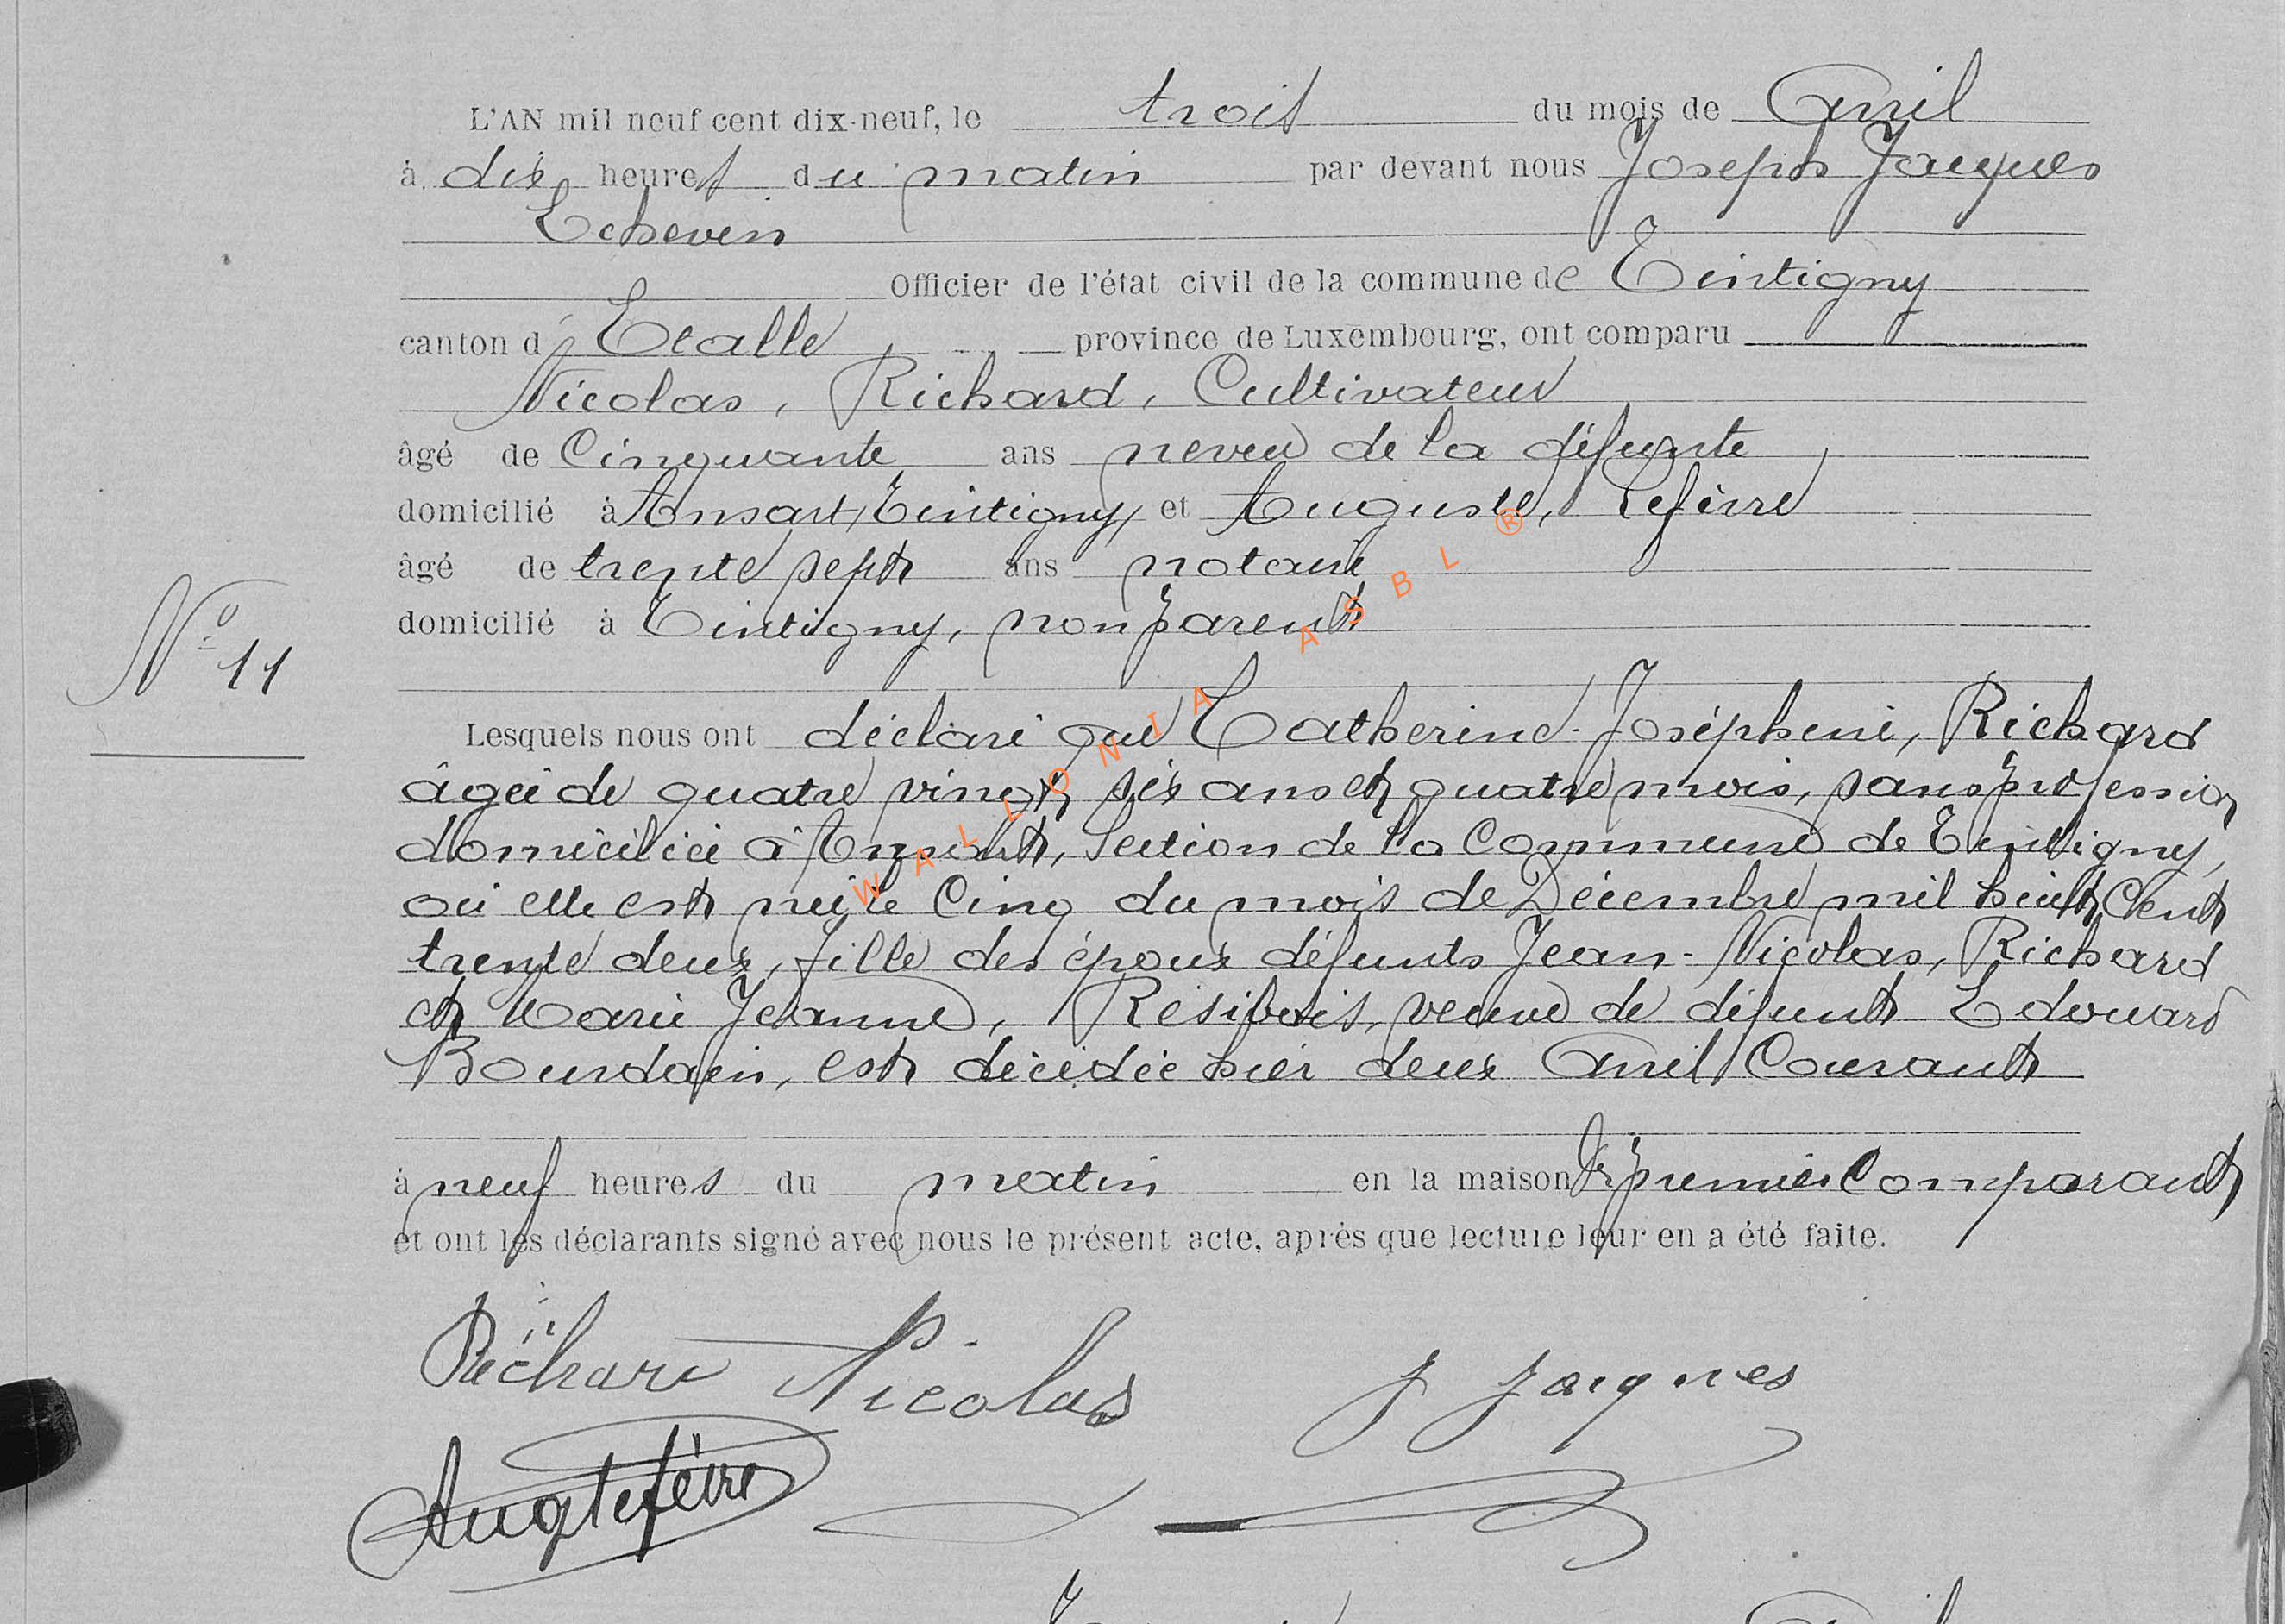 L'AN mil neuf cent dix-neuf, le trois du mois de Avril
à dix heures du matin par devant nous Joseph Jacques
Echevin
Officier de l'état civil de la commune de Tintigny
canton d' Etalle province de Luxembourg, ont comparu
Nicolas, Richard, Cultivateur
âgé de Cinquante ans neveu de la défunte
domicilié à Ansart, Tintigny, et Auguste, Lefèvre
âgé de trente sept ans notaire
domicilié à Tintigny, non parent
N° 11
Lesquels nous ont déclaré que Catherine-Joséphine, Richard
âgée de quatre vingt six ans et quatre mois, sans profession
domiciliée à Ansart, Section de la Commune de Tintigny,
où elle est née le Cinq du mois de Décembre mil huit Cent
trente deux, fille des époux défunts Jean-Nicolas, Richard
et Marie Jeanne, Résibois, veuve de défunt Edouard
Bourdain, est décédée hier deux Avril Courant
à neuf heures du matin en la maison du premier Comparant
et ont les déclarants signé avec nous le présent acte, après que lecture leur en a été faite.
Richard Nicolas J Jacques
Aug Lefèvre
WALLONIA ASBL ®